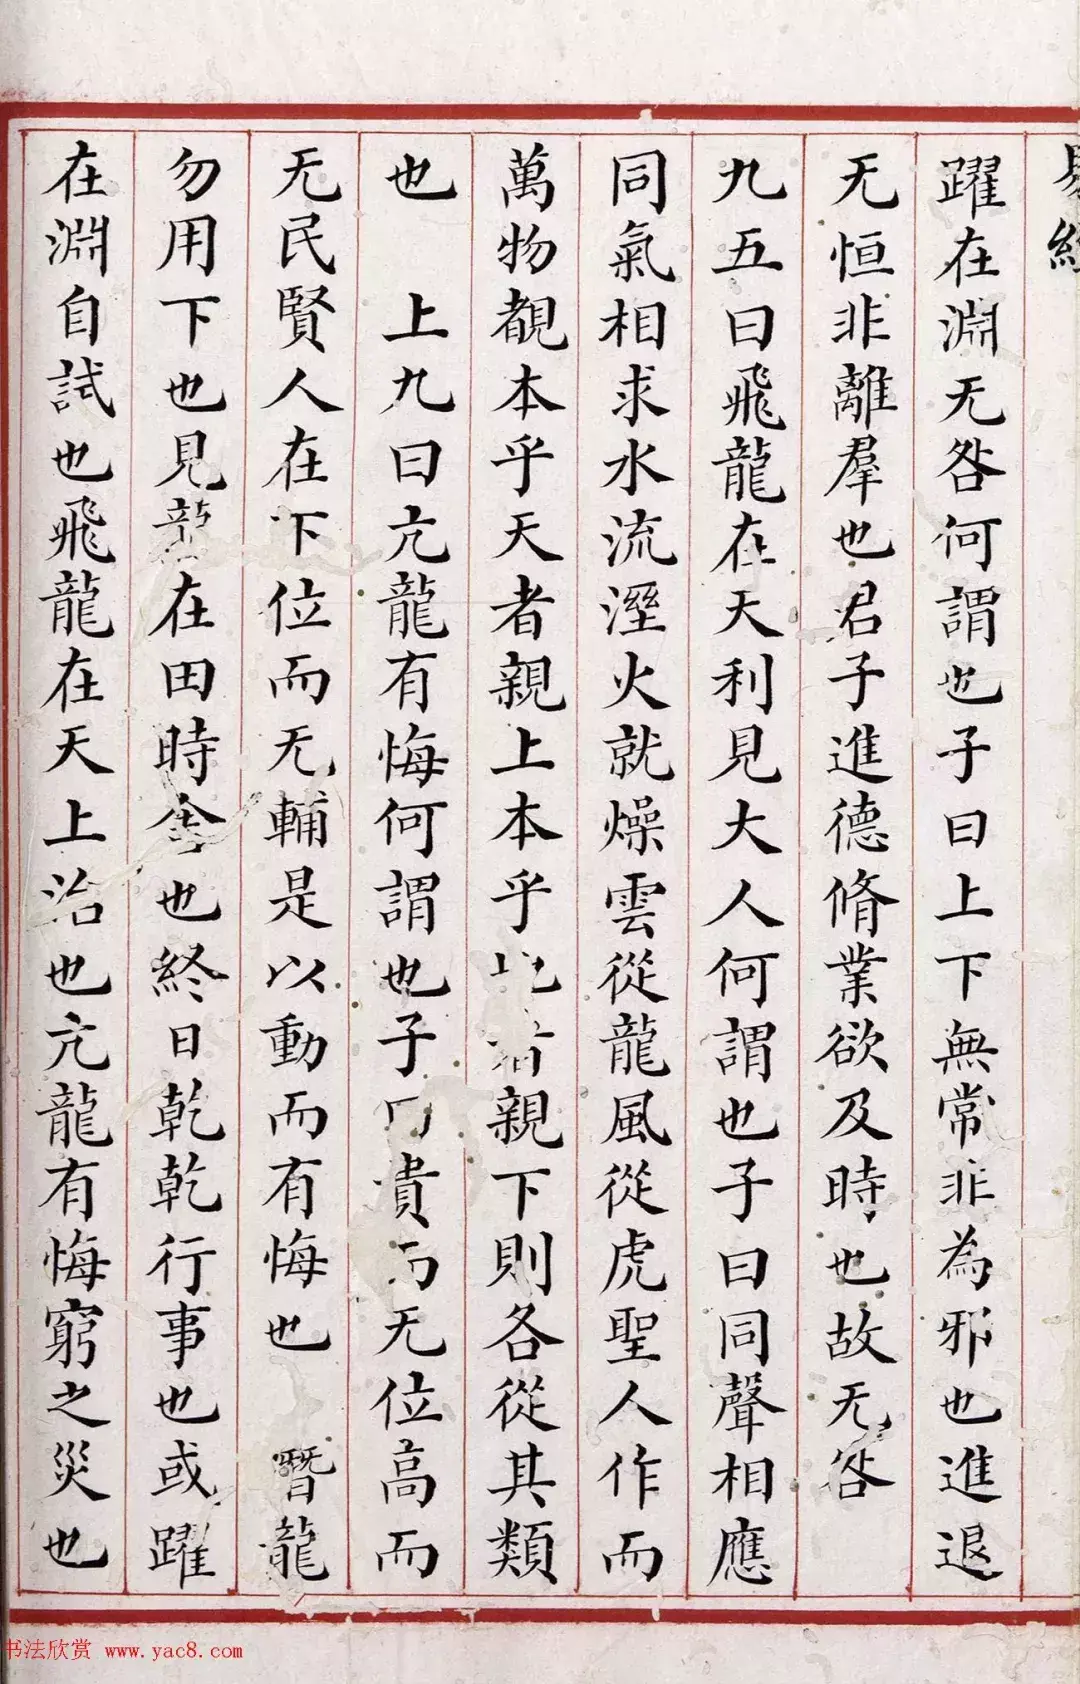 易經
躍在淵无咎何謂也子曰上下無常非為邪也進退
无恒非離羣也君子進德脩業欲及時也故无咎
九五曰飛龍在天利見大人何謂也子曰同聲相應
同氣相求水流溼火就燥雲從龍風從虎聖人作而
萬物覩本乎天者親上本乎地者親下則各從其類
也 上九曰亢龍有悔何謂也子曰貴而无位高而
无民賢人在下位而无輔是以動而有悔也 潛龍
勿用下也見龍在田時舍也終日乾乾行事也或躍
在淵自試也飛龍在天上治也亢龍有悔窮之災也
书法欣赏 www.yac8.com